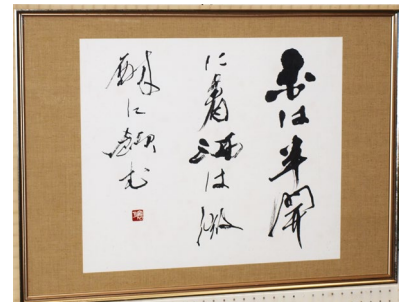 花は半開
に看酒は微
酔に飲む